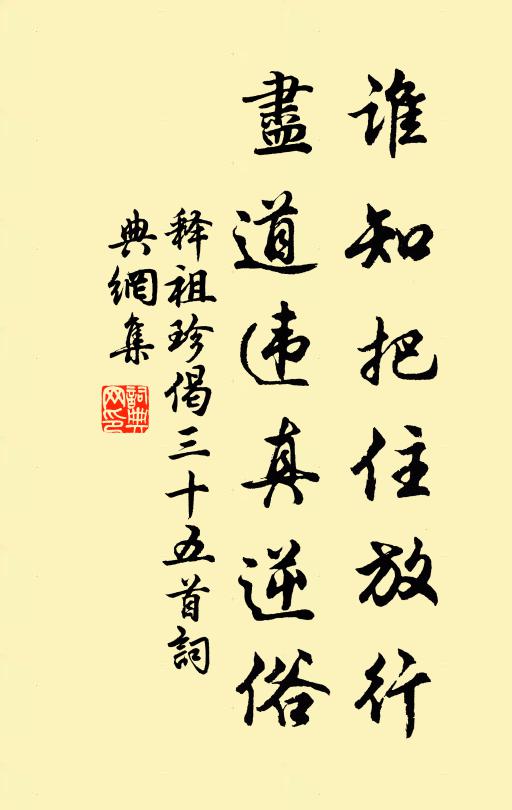 谁知把住放行
盡道违真逆俗
释祖珍偈三十五首詞
典網集
詞典网印